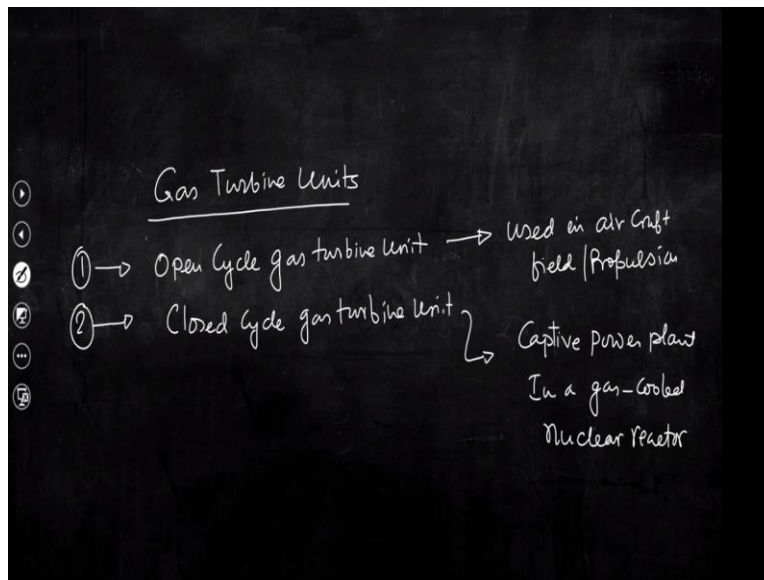 Gas Turbine Units
① → Open Cycle gas turbine Unit → used in air Craft
field/Propulsion
② → Closed Cycle gas turbine Unit
Captive power plant
In a gas-cooled
nuclear reactor